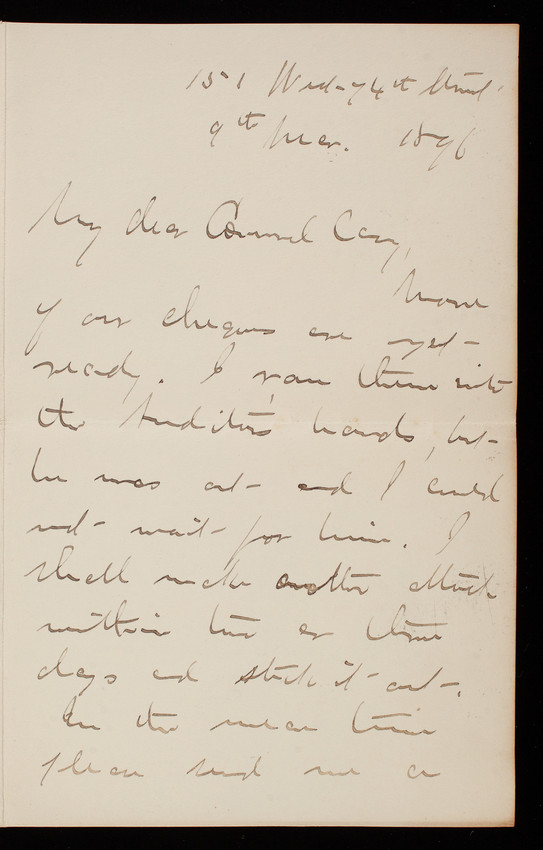 151 West 74th Street
9th Mar. 1896
My dear General Casey,
None
of our cheques are yet
ready. I ran them into
the Auditor's hands, but
he was out and I could
not wait for him. I
shall make another attack
within two or three
days and stick it out.
In the mean time
please send me a